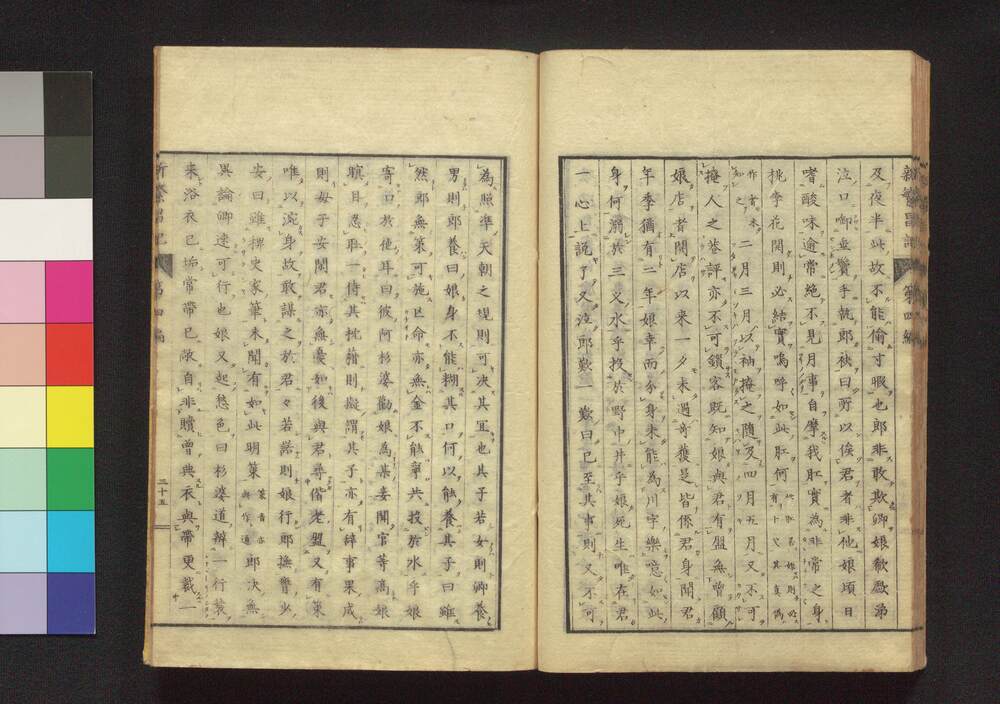 新繁昌記 第四編
及夜半此故不能偷寸暇也郎非敢欺卿娘欷歔涕
泣口啣垂鬢手執郎袂曰所以俟君者非他娘頃日
嗜酸味逾常絶不見月事自摩我肚實為非常之身
桃李花開則必結實嗚呼如此肚何
作者未 二月三月以袖掩之随及四月五月又不可
掩人之蒼評亦不可鎖客既知娘與君有盟無曽顧
娘店者開店以来一夕未遇奇獲是皆係君身閒君
年季猶有二年娘幸而分身未能為川字樂噫如此
身何溺共三叉水乎投於野中井乎娘死生唯在君
一心上説了又泣郎歎一歎曰已至其事則又不可
為照準天朝之規則可决其冝也其子若女則卿養
男則郎養曰娘身不能糊其口何以能養其子曰雖
然郎無策可施亡命亦無金不能寧共投於水乎娘
寄口於他耳曰彼阿杉婆勸娘為某妾聞官等高娘
瞋目忍耻一侍其枕藉則擬謂其子亦有辭事果成
則母子安閑君亦無憂如後與君尋偕老盟又有策
唯以涴身故敢謀之於君々若諾則娘行郎撫臂少
安曰雖稗史家筆未聞有如此明策 郎决無
異論卿速可行也娘又起愁色曰杉婆道辨一行裝
来浴衣已垢常帶已敝自非贖曽典衣與帶更裁一
新繁昌記 第四編
二十五